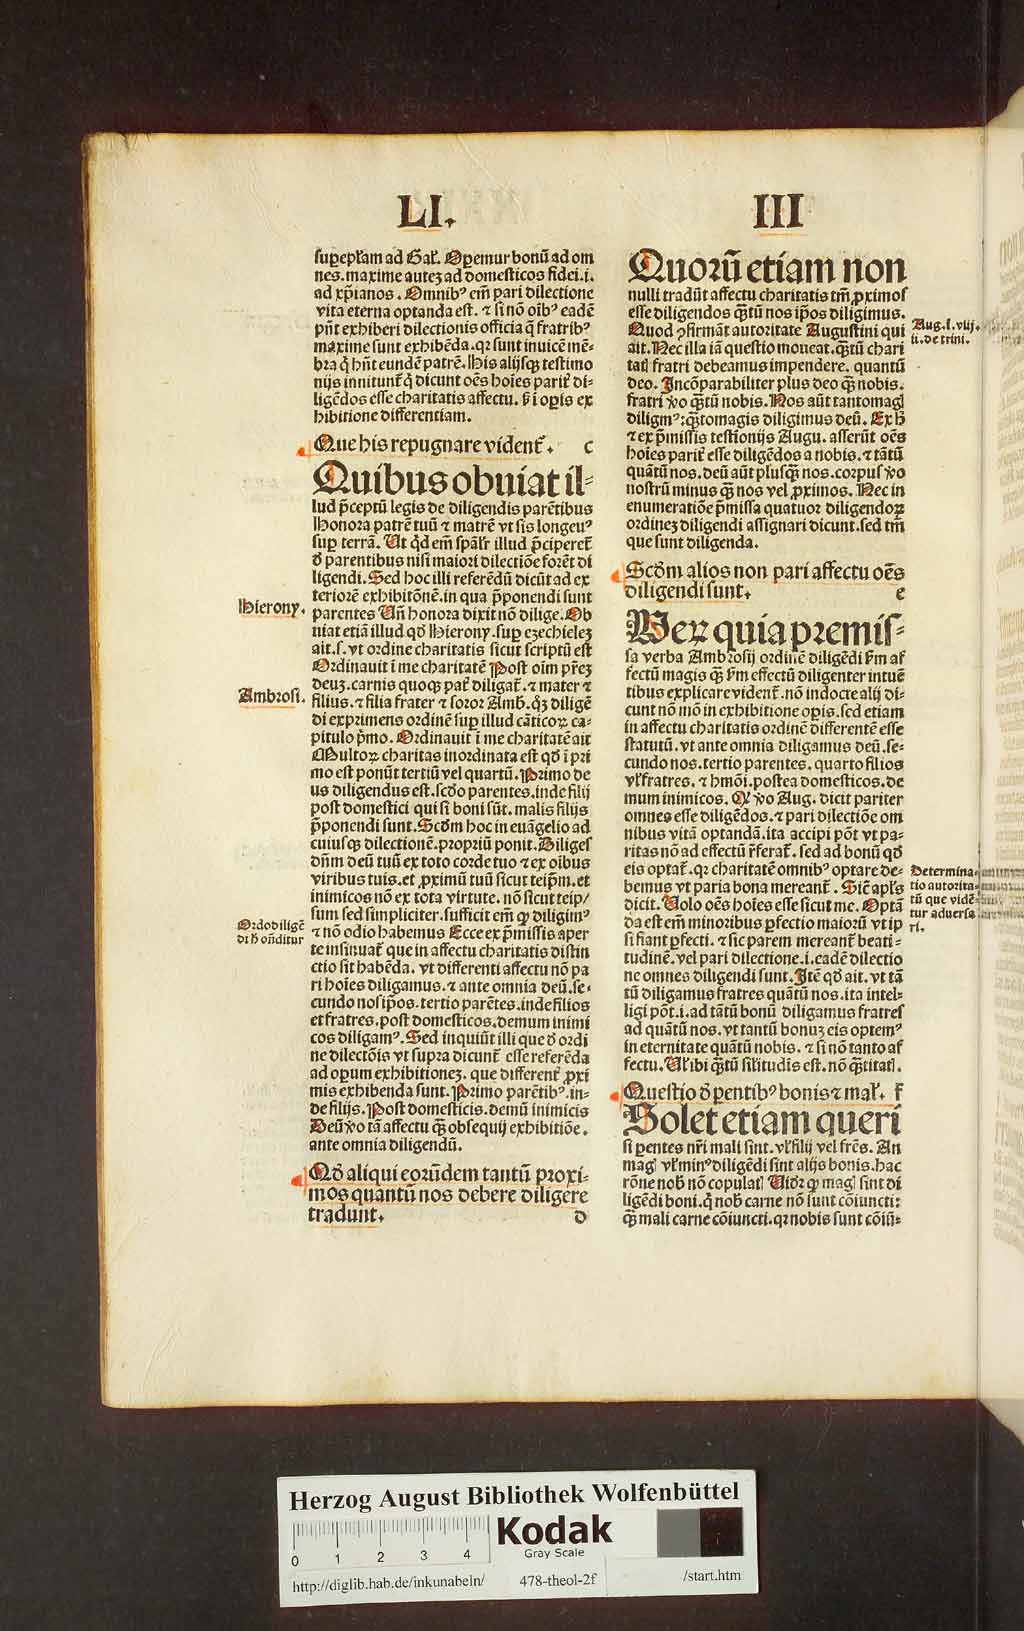 LI.
III
supeꝑl̃am ad Gal̃. Oꝑemur bonũ ad om
nes.maxime auteꝫ ad domesticos fidei.i.
ad xp̃ianos. Omnibꝰ em̃ pari dilectione
vita eterna optanda est. ⁊ si nõ oĩbꝰ eadẽ
pñt exhiberi dilectionis officia q̃ fratribꝰ
maxime sunt exhibẽda.qꝛ sunt inuicẽ mẽ-
bra q̇ hñt eundẽ patrẽ. His alijsqꝫ testimo
nijs innitunt̃ q̇ dicunt oẽs hoies parit̃ di-
ligẽdos esse charitatis affectu. ẞ i oꝑis ex
hibitione differentiam.
Que his repugnare vident̃. c
Quibus obuiat il-
lud p̃ceptũ legis de diligendis parẽtibus
Honora patrẽ tuũ ⁊ matrẽ vt sis longeuꝰ
suꝑ terrã. Ut qd em̃ spãl̃r illud p̃ciperet̃
d̃ parentibus nisi maiori dilectiõe forẽt di
ligendi. Sed hoc illi referẽdũ dicũt ad ex
teriorẽ exhibitõnẽ.in qua p̃ponendi sunt
parentes Uñ honora dixit nõ dilige. Ob
uiat etiã illud qd̃ Hierony.suꝑ ezechieleꝫ
ait.s.vt ordine charitatis sicut scriptũ est
Ordinauit i me charitatẽ Post oĩm p̃reꝫ
deuꝫ.carnis quoqꝫ pat̃ diligat̃. ⁊ mater ⁊
filius.⁊ filia frater ⁊ soror Amb.q̊ꝫ diligẽ
di exprimens ordinẽ suꝑ illud cãticoꝝ ca-
pitulo p̃mo. Ordinauit i me charitatẽ ait
Multoꝝ charitas inordinata est qd̃ i pri
mo est ponũt tertiũ vel quartũ. Primo de
us diligendus est.scd̃o parentes.inde filij
post domestici qui si boni sũt. malis filijs
p̃ponendi sunt. Scd̃m hoc in euãgelio ad
cuiusqꝫ dilectionẽ.propriũ ponit. Diliges
dñm deũ tuũ ex toto corde tuo ⁊ ex oibus
viribus tuis.et ꝓximũ tuũ sicut teip̃m.et
inimicos nõ ex tota virtute. nõ sicut teip/
sum sed simpliciter.sufficit em̃ ꝙ diligimꝰ
⁊ nõ odio habemus Ecce ex p̃missis aper
te insinuat̃ que in affectu charitatis distin
ctio sit habẽda. vt differenti affectu nõ pa
ri hoies diligamus.⁊ ante omnia deũ.se-
cundo nosip̃os.tertio parẽtes.inde filios
et fratres.post domesticos.demum inimi
cos diligamꝰ. Sed inquiũt illi que d̃ ordi
ne dilectõis vt supra dicunt̃ esse referẽda
ad operum exhibitioneꝫ. que different̃ ꝓxi
mis exhibenda sunt. Primo parẽtibꝰ.in-
de filijs. Post domesticis.demũ inimicis
Deũ v̊o tã affectu q̃ꝫ obsequij exhibitiõe.
ante omnia diligendũ.
Qd̃ aliqui eorũdem tantũ proxi-
mos quantũ nos debere diligere
tradunt. d
Hierony.
Ambrosi.
Ordo diligẽ
di h̃ oñditur
Quorũ etiam non
nulli tradũt affectu charitatis tm̃ ꝓximos
esse diligendos q̃ꝫtũ nos ip̃os diligimus.
Quod ꝯfirmãt autoritate Augustini qui
ait. Nec illa iã questio moueat.q̃ꝫtũ chari
tatꝭ fratri debeamus impendere. quantũ
deo. Incõparabiliter plus deo q̃ꝫ nobis.
fratri v̊o q̃ꝫtũ nobis. Nos aũt tantomagꝭ
diligimꝰ:q̃ꝫtomagis diligimus deũ. Ex h̃
⁊ ex p̃missis testionijs Augu. asserũt oẽs
hoies parit̃ esse diligẽdos a nobis.⁊ tãtũ
quãtũ nos.deũ aũt plusq̃ꝫ nos.corpus v̊o
nostrũ minus q̃ꝫ nos vel ꝓximos. Nec in
enumeratiõe p̃missa quatuor diligendoꝝ
ordineꝫ diligendi assignari dicunt.sed tm̃
que sunt diligenda.
Scd̃m alios non pari affectu oẽs
diligendi sunt. e
Ueꝝ quia premis-
sa verba Ambrosij ordinẽ diligẽdi ẞm af
fectũ magis q̃ꝫ ẞm effectũ diligenter intuẽ
tibus explicare vident̃.nõ indocte alij di-
cunt nõ mõ in exhibitione oꝑis.sed etiam
in affectu charitatis ordinẽ differentẽ esse
statutũ.vt ante omnia diligamus deũ.se-
cundo nos.tertio parentes.quarto filios
vl̃ fratres. ⁊ hmõi.postea domesticos.de
mum inimicos. Qꝛ v̊o Aug. dicit pariter
omnes esse diligẽdos.⁊ pari dilectiõe om
nibus vitã optandã.ita accipi põt vt pa-
ritas nõ ad effectũ r̃ferat̃. sed ad bonũ qd̃
eis optat̃.qꝛ charitatẽ omnibꝰ optare de-
bemus vt paria bona mereant̃. Siẽ apl̃s
dicit. Uolo oẽs hoies esse sicut me. Optã
da est em̃ minoribus ꝑfectio maiorũ vt ip
si fiant ꝑfecti.⁊ sic parem mereant̃ beati-
tudinẽ.vel pari dilectione.i.eadẽ dilectio
ne omnes diligendi sunt. Itẽ qd̃ ait.vt tã
tũ diligamus fratres quãtũ nos.ita intel-
ligi põt.i.ad tãtũ bonũ diligamus fratres
ad quãtũ nos.vt tantũ bonuꝫ eis optemꝰ
in eternitate quãtũ nobis.⁊ si nõ tanto af
fectu. Ul̃ ibi q̃ꝫtũ silitudis est.nõ q̃ꝫtitatꝭ.
Questio d̃ ꝑentibꝰ bonis ⁊ mal̃. f
Solet etiam queri
si ꝑentes nr̃i mali sint.vl̃ filij vel frẽs. An
magꝭ vl̃ minꝰ diligẽdi sint alijs bonis.hac
rõne nob̃ nõ copulatꝭ Uidꝛ ꝙ magꝭ sint di
ligẽdi boni.q̇ nob̃ carne nõ sunt cõiuncti:
q̃ꝫ mali carne cõiuncti.qꝛ nobis sunt cõiũ-
Aug.l.viij.
ii.de trini.
Determina-
tio autorita-
tũ que vidẽ-
tur aduersa
ri.
Herzog August Bibliothek Wolfenbüttel
Kodak
Gray Scale
0 1 2 3 4
http://diglib.hab.de/inkunabeln/ 478-theol-2f /start.htm